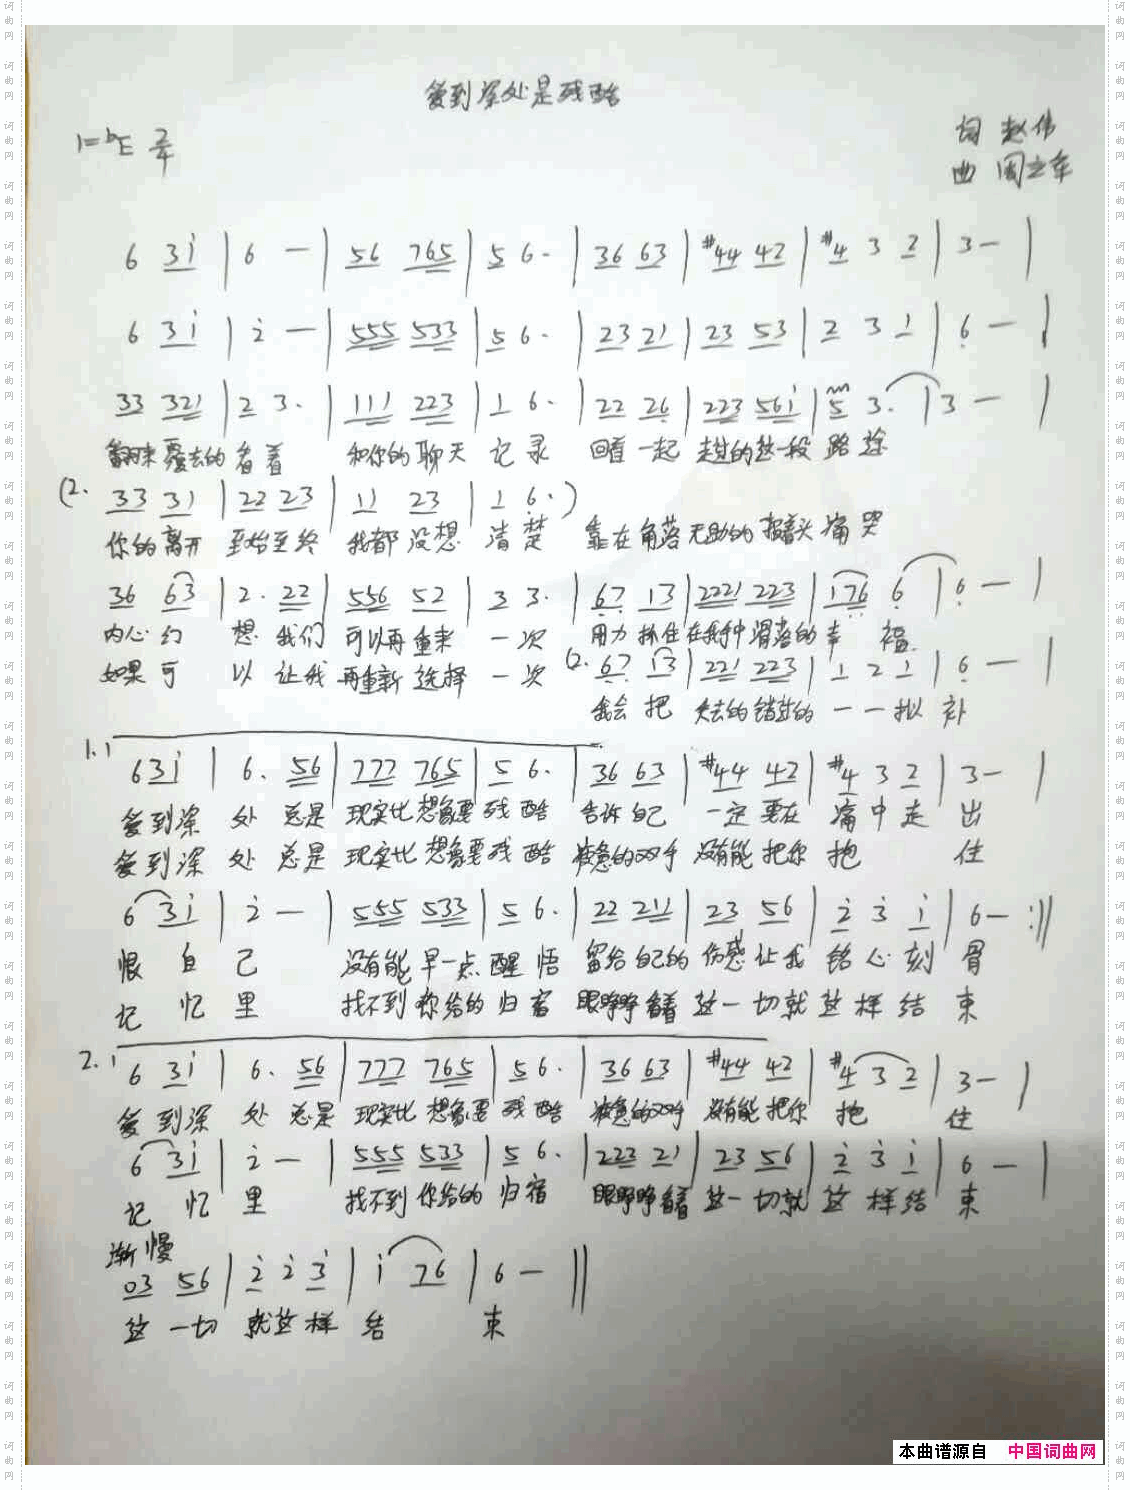 爱到深处是残酷
1=bE 2/4
词 赵伟
曲 闫立军
6 3i | 6 — | 56 765 | 5 6. | 36 63 | #44 42 | #4 3 2 | 3 — |
6 3i | 2 — | 555 533 | 5 6. | 23 21 | 23 53 | 2 3 1 | 6 — |
33 321 | 2 3. | 111 223 | 1 6. | 22 26 | 223 561 | 5 3. | 3 — |
翻来覆去的看着 和你的聊天 记录 回看一起 走过的这一段 路途
(2. 33 31 | 22 23 | 11 23 | 1 6. )
你的离开 至始至终 我都没想 清楚 靠在角落无助的抱着头痛哭
36 63 | 2. 22 | 556 52 | 3 3. | 67 13 | 2221 223 | 176 6 | 6 — |
内心幻 想 我们 可以再重来 一次 用力抓住在我手中滑落的幸 福
如果可 以 让我 再重新选择 一次
(2. 67 13 | 221 223 | 1 2 1 | 6 — |
我会把 失去的错过的 一一拟补
1. 63i | 6. 56 | 777 765 | 5 6. | 36 63 | #44 42 | #4 3 2 | 3 — |
爱到深 处 总是 现实比想象要残 酷 告诉自己 一定要在 痛中走 出
爱到深 处 总是 现实比想象要残 酷 疲惫的双手 没有能把你 抱 住
6 3i | 2 — | 555 533 | 5 6. | 22 211 | 23 56 | 2 3 i | 6 — :||
恨 自 己 没有能早一点醒悟 留给自己的伤感让我铭心刻 骨
记 忆 里 找不到你给的归宿 眼睁睁看着这一切就这样结 束
2. 6 3i | 6. 56 | 777 765 | 5 6. | 36 63 | #44 42 | #4 3 2 | 3 — |
爱到深 处 总是 现实比想象要残 酷 疲惫的双手 没有能把你 抱 住
6 3i | 2 — | 555 533 | 5 6. | 223 21 | 23 56 | 2 3 i | 6 — |
记 忆 里 找不到你给的归宿 眼睁睁看着这一切就这样结 束
渐慢
03 56 | 2 2 3 | i 76 | 6 — ||
这一切 就这样 结 束
本曲谱源自 中国词曲网